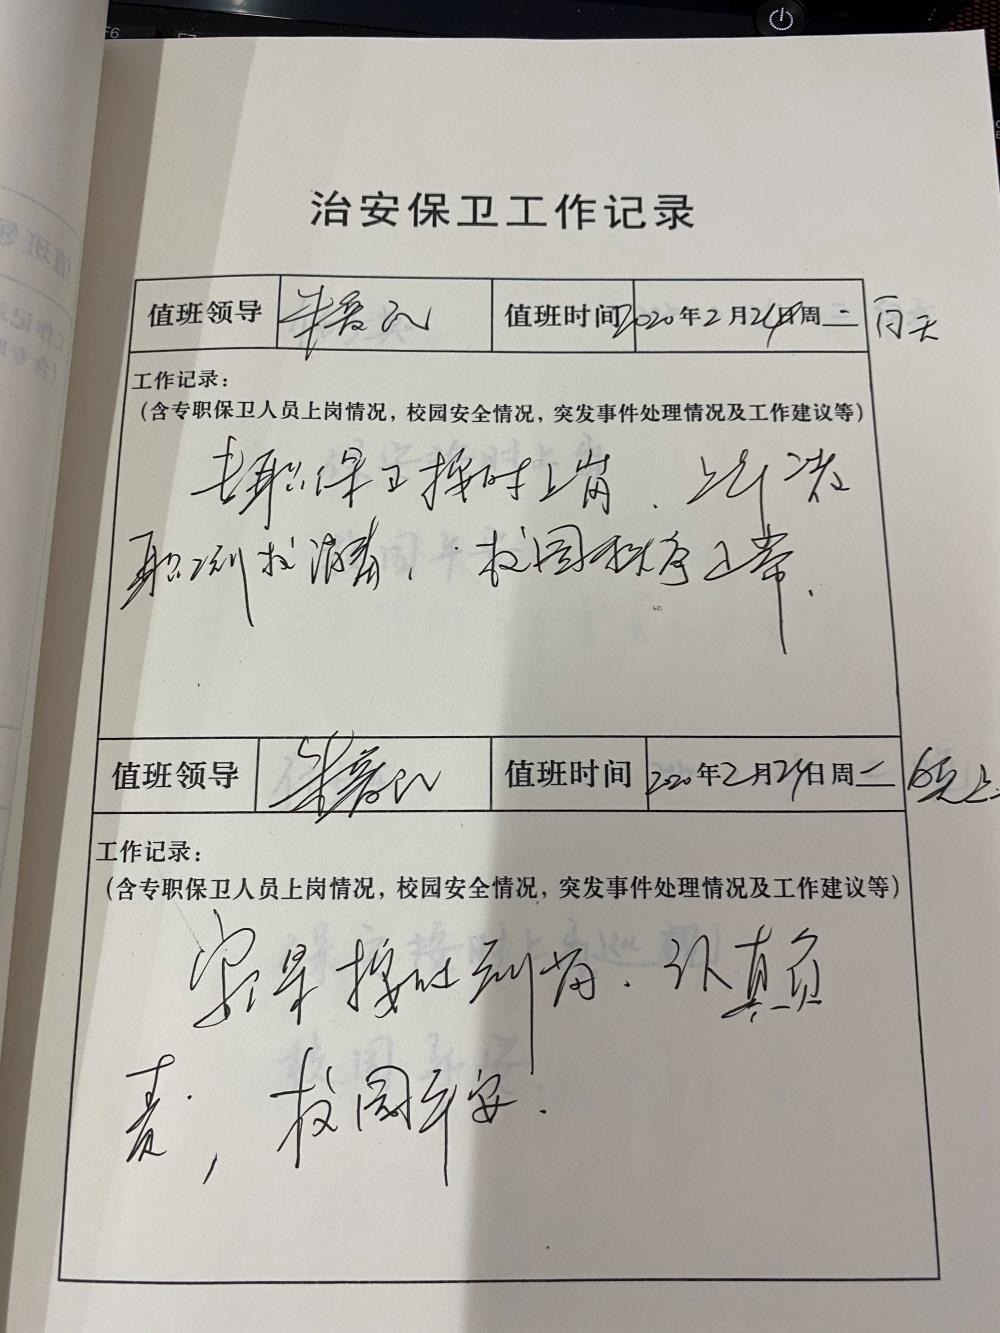 治安保卫工作记录
值班领导 朱 值班时间 2020年2月24日周二 白天
工作记录：
（含专职保卫人员上岗情况，校园安全情况，突发事件处理情况及工作建议等）
专职保卫按时上岗．
职到校消毒，校园秩序正常．
值班领导 朱 值班时间 2020年2月24日周二 晚上
工作记录：
（含专职保卫人员上岗情况，校园安全情况，突发事件处理情况及工作建议等）
按时到岗．认真负
责，校园平安．